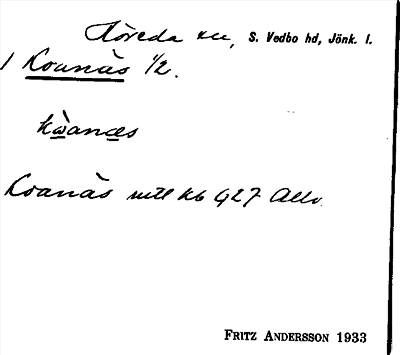 Höreda sn, S. Vedbo hd, Jönk. l.
1 Koanäs 1/2.
kωanæs
Koanäs mtl kb 927 Allv.
FRITZ ANDERSSON 1933